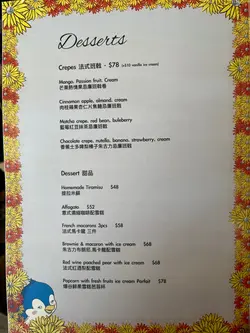 Desserts
Crepes 法式班戟 - $78 (+$10 vanilla ice cream)
Mango, Passion fruit, Cream
芒果熱情果忌廉班戟卷
Cinnamon apple, almond, cream
肉桂蘋果杏仁片焦糖忌廉班戟
Matcha crepe, red bean, buleberry
藍莓紅豆抹茶忌廉班戟
Chocolate crepe, nutella, banana, strawberry, cream
香蕉士多啤梨榛子朱古力忌廉班戟
Dessert 甜品
Homemade Tiramisu $48
提拉米蘇
Affogato $52
意式濃縮咖啡配雪糕
French macarons 3pcs $58
法式馬卡龍 三件
Brownie & macaron with ice cream $68
朱古力布朗尼,馬卡龍配雪糕
Red wine poached pear with ice cream $68
法式紅酒梨配雪糕
Popcorn with fresh fruits ice cream Parfait $78
爆谷鮮果雪糕芭菲杯